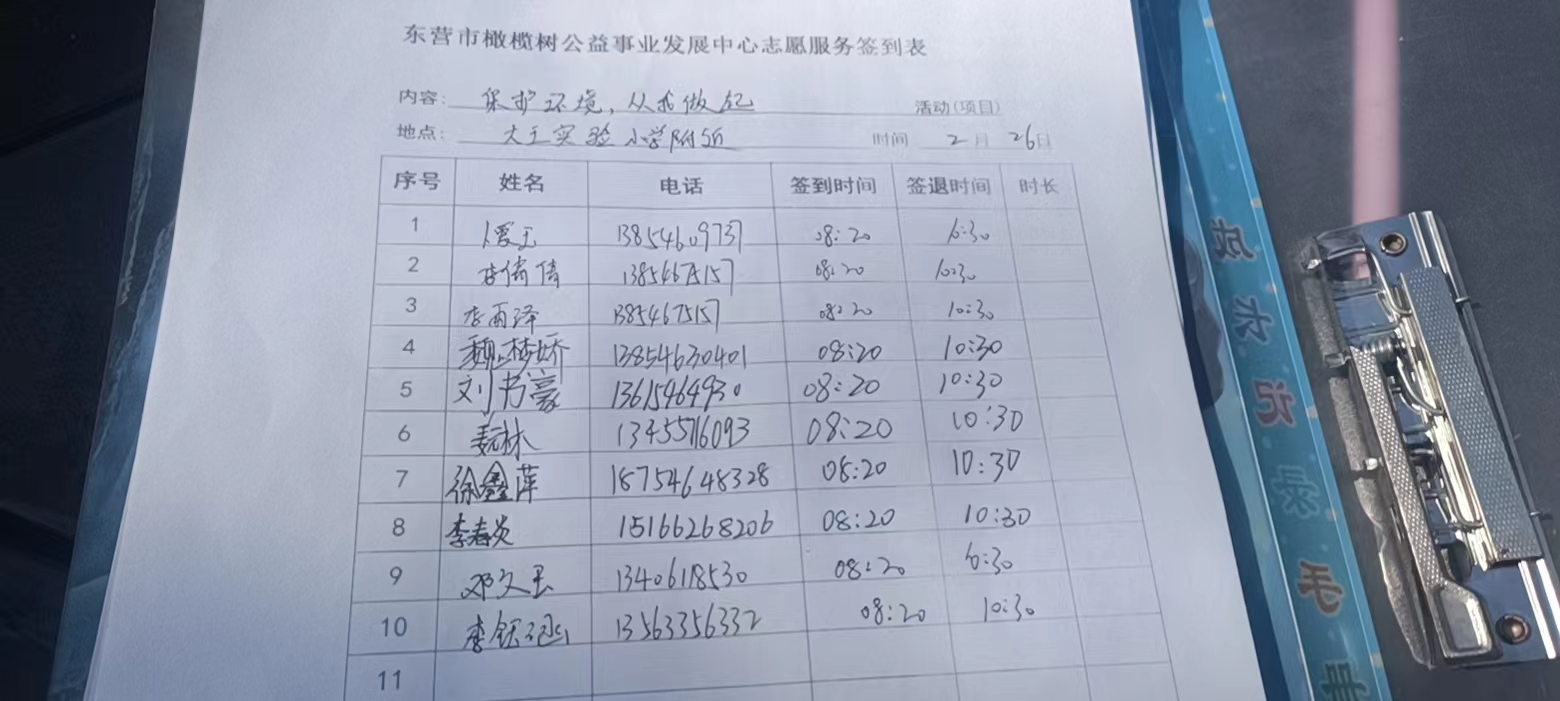 东营市橄榄树公益事业发展中心志愿服务签到表
内容: 保护环境，从我做起 活动(项目)
地点: 大王实验小学附近 时间 2月 26日
序号 姓名 电话 签到时间 签退时间 时长
1 13854609737 08:20 10:30
2 李倩倩 13854675157 08:20 10:30
3 李雨泽 13854675157 08:20 10:30
4 魏梦娇 13854630401 08:20 10:30
5 刘书豪 13615464930 08:20 10:30
6 13455716093 08:20 10:30
7 徐鑫萍 18754648328 08:20 10:30
8 李春炎 15166268206 08:20 10:30
9 邓文玉 1340618530 08:20 10:30
10 李钰涵 13563356332 08:20 10:30
11
成长记录手册